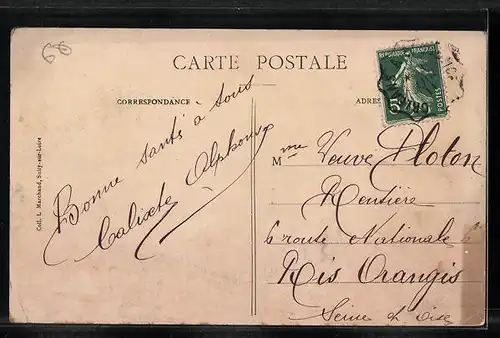 68
CARTE POSTALE
CORRESPONDANCE
ADRES
REPUBLIQUE FRANÇAISE
5c
POSTES
Bonne santé à tous
Calixte Alphonse
Coll. L. Marchand, Sully-sur-Loire
Mme Veuve Ploton
Rentière
6 route Nationale 6
Ris Orangis
Seine et Oise